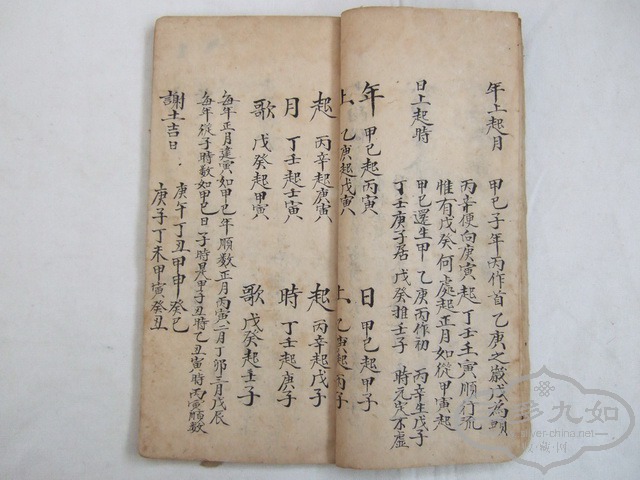 年上起月
甲己子年丙作首 乙庚之歲戊為頭
丙辛便向庚寅起 丁壬壬寅順行流
惟有戊癸何處起 正月如從甲寅起
日上起時
甲己還生甲 乙庚丙作初 丙辛生戊子
丁壬庚子居 戊癸推壬子 時元定不虛
年上起月歌
甲己起丙寅
乙庚起戊寅
丙辛起庚寅
丁壬起壬寅
戊癸起甲寅
日上起時歌
甲己起甲子
乙庚起丙子
丙辛起戊子
丁壬起庚子
戊癸起壬子
每年正月建寅如甲己年順數正月丙寅二月丁卯三月戊辰
每年從子時数如甲己日子時是甲子丑時乙丑寅時丙寅順数
謝土吉日
庚午丁丑甲申癸巳
庚子丁未甲寅癸丑
九如